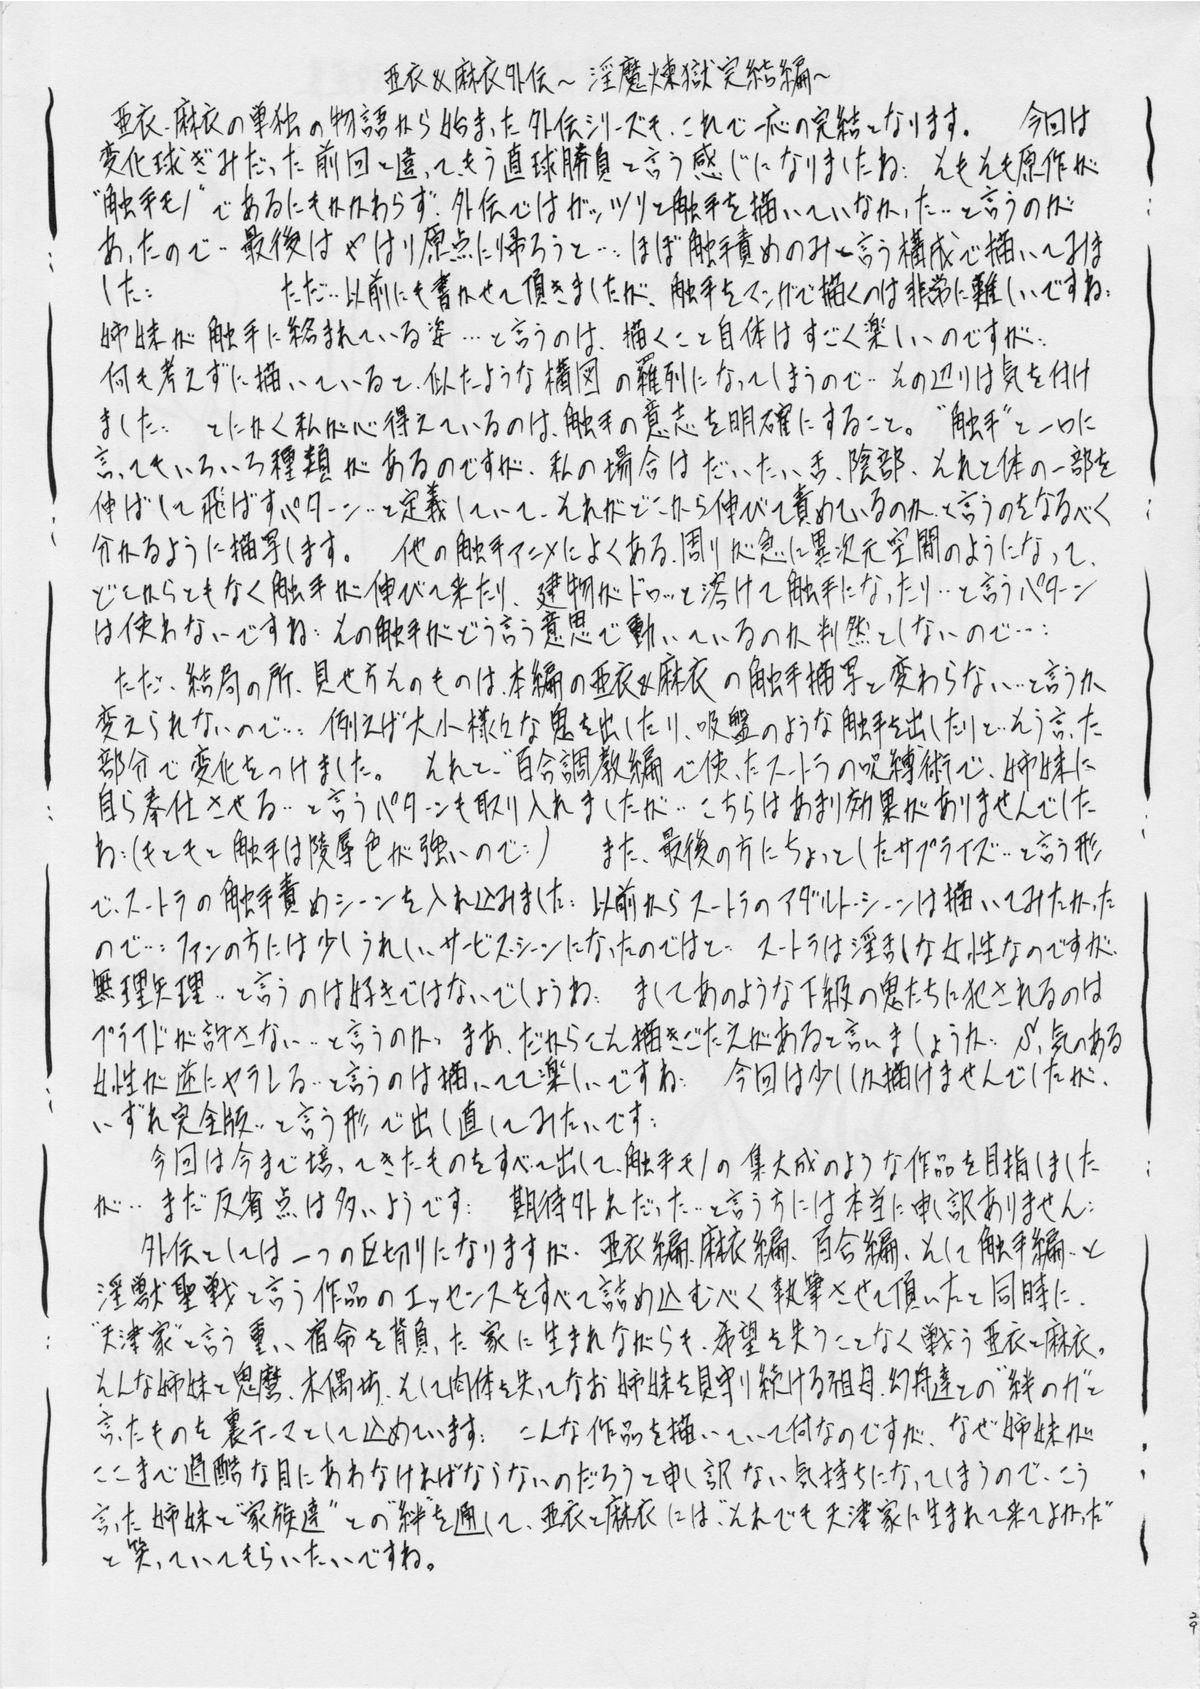 亜衣&麻衣外伝～淫魔煉獄完結編～
亜衣、麻衣の単独の物語から始まった外伝シリーズも、これで一応の完結となります。 今回は
変化球ぎみだった前回と違って、もう直球勝負と言う感じになりましたね… そもそも原作が
"触手モノ"であるにもかかわらず、外伝ではガッツリと触手を描いていなかった…と言うのが
あったので…最後はやはり原点に帰ろうと…ほぼ触手責めのみと言う構成で描いてみま
した… ただ…以前にも書かせて頂きましたが、触手をマンガで描くのは非常に難しいですね…
姉妹が触手に絡まれている姿…と言うのは、描くこと自体はすごく楽しいのですが…
何も考えずに描いていると、似たような構図の羅列になってしまうので…その辺りは気を付け
ました… とにかく私が心得ているのは、触手の意志を明確にすること。"触手"と一口に
言ってもいろいろ種類があるのですが、私の場合はだいたい舌、陰部、それと体の一部を
伸ばして飛ばすパターン…と定義していて、それがどこから伸びて責めているのか、と言うのをなるべく
分かるように描写します。 他の触手アニメによくある、周りが急に異次元空間のようになって、
どこからともなく触手が伸びて来たり、建物がドロッと溶けて触手になったり…と言うパターン
は使わないですね…その触手がどう言う意思で動いているのか判然としないので…
ただ、結局の所、見せ方そのものは、本編の亜衣&麻衣の触手描写と変わらない…と言うか
変えられないので…例えば大小様々な鬼を出したり、吸盤のような触手を出したりと…そう言った
部分で変化をつけました。 それと、"百合調教編"で使ったスートラの呪縛術で、姉妹に
自ら奉仕させる…と言うパターンも取り入れましたが…こちらはあまり効果がありませんでした
ね…(もともと触手は陵辱色が強いので…) また、最後の方にちょっとしたサプライズ…と言う形
で、スートラの触手責めシーンを入れ込みました…以前からスートラのアダルト・シーンは描いてみたかった
ので…ファンの方には少しうれしい、サービス・シーンになったのではと… スートラは淫乱な女性なのですが、
無理矢理…と言うのは好きではないでしょうね… ましてあのような下級の鬼たちに犯されるのは
プライドが許さない…と言うのか、まあ、だからこそ描きごたえがあると言いましょうか… S、気のある
女性が逆にヤラレる…と言うのは描いてて楽しいですね… 今回は少ししか描けませんでしたが、
いずれ完全版…と言う形で出し直してみたいです…
今回は今まで培ってきたものをすべて出して、触手モノの集大成のような作品を目指しました
が…まだ反省点は多いようです… 期待外れだった…と言う方には本当に申し訳ありません…
外伝としては一つの区切りになりますが、亜衣編、麻衣編、百合編、そして触手編…と
淫獣聖戦と言う作品のエッセンスをすべて詰め込むべく執筆させて頂いたと同時に、
"天津家"と言う重い宿命を背負った家に生まれながらも、希望を失うことなく戦う亜衣と麻衣。
そんな姉妹と鬼麿、木偶坊、そして肉体を失ってなお姉妹を見守り続ける祖母、幻舟達との"絆の力"と
言ったものを裏テーマとして込めています… こんな作品を描いていて何なのですが、なぜ姉妹が
ここまで過酷な目にあわなければならないのだろうと申し訳ない気持ちになってしまうので、こう
言った姉妹と"家族達"との"絆"を通して、亜衣と麻衣には、"それでも天津家に生まれて来てよかった"
と笑っていてもらいたいですね。
29